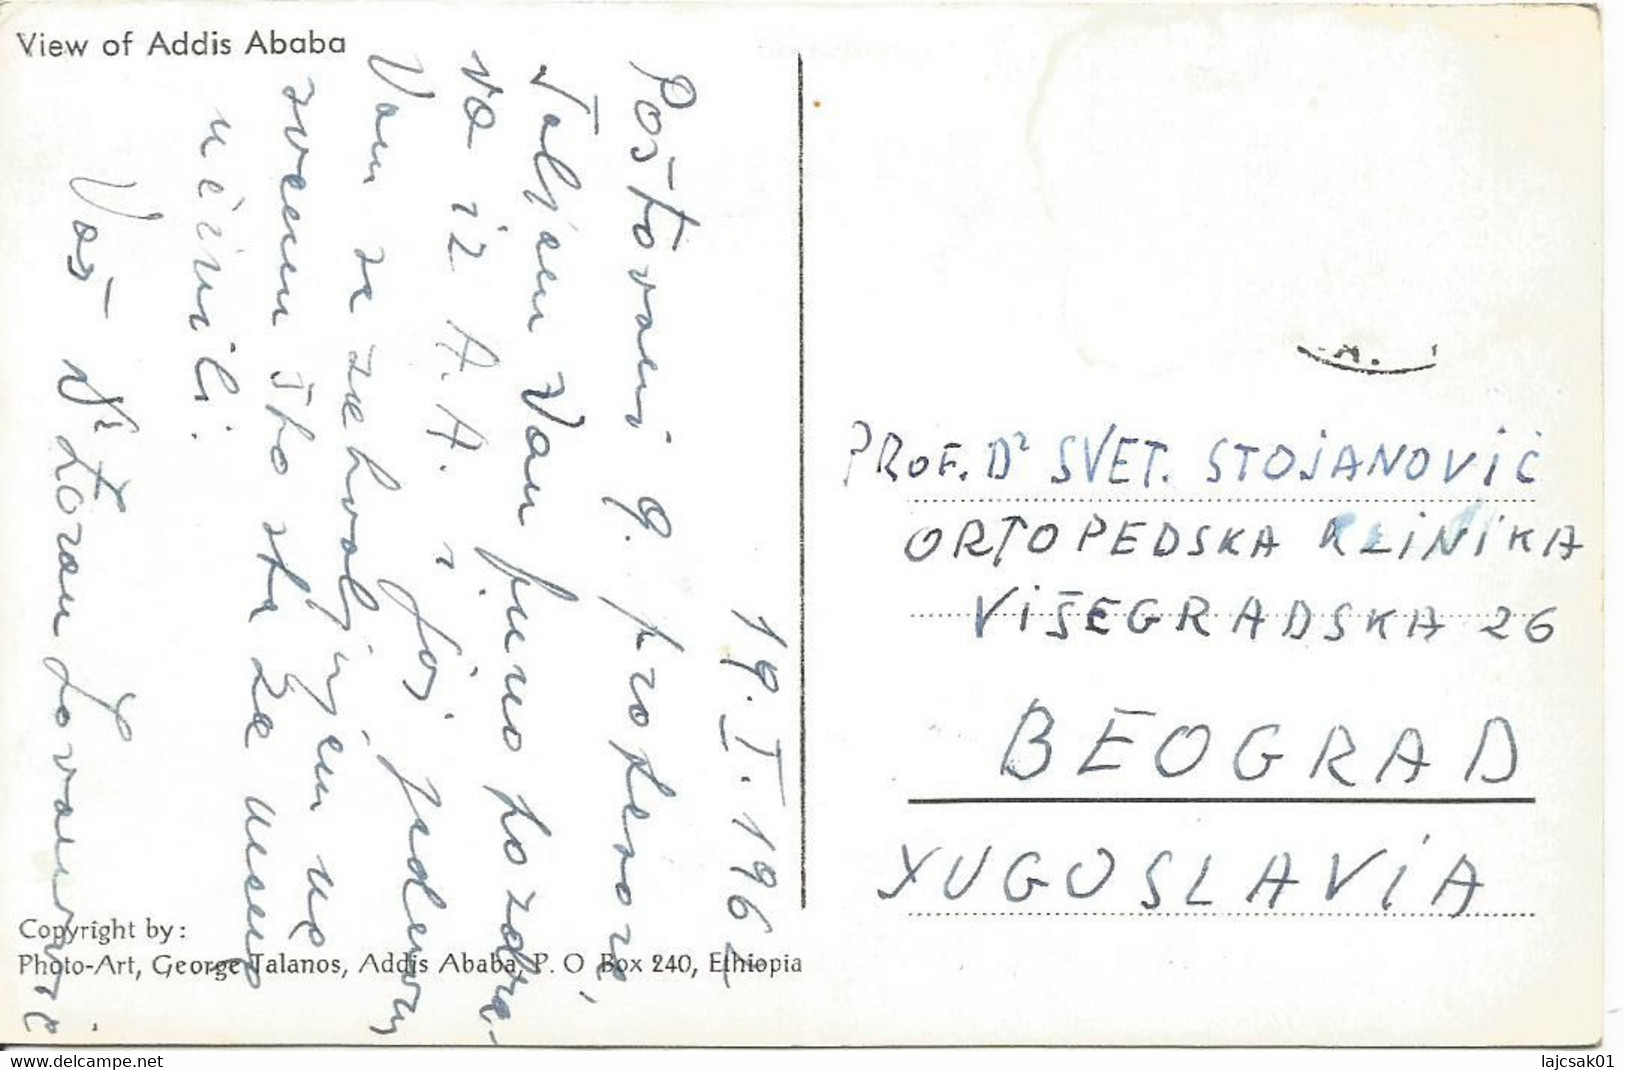 View of Addis Ababa
19. I. 196
Poštovani g. profesore,
Šaljem Vam puno pozdra-
va iz A. A. i
Vam se zahvaljujem na
svemu što ste za mene
učinili.
Vaš Dr Zoran Lovanović
Copyright by:
Photo-Art, George Talanos, Addis Ababa, P. O Box 240, Ethiopia
A.
PROF. Dr SVET. STOJANOVIĆ
ORTOPEDSKA KLINIKA
VIŠEGRADSKA 26
BEOGRAD
YUGOSLAVIA
lajcsak01
delcampe.net